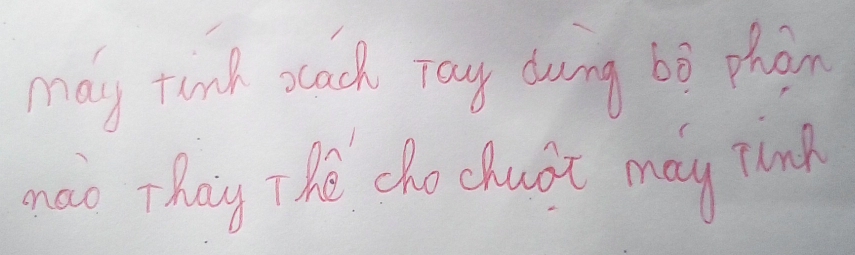 máy tính xách tay dùng bộ phận
nào thay thế cho chuột máy tính